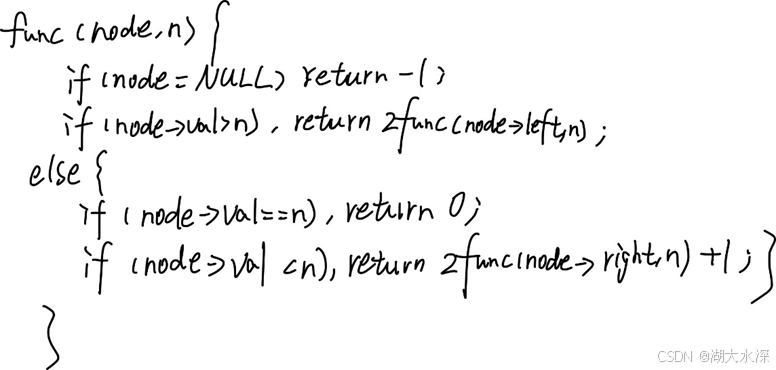 func(node,n) {
if (node=NULL) return -1;
if (node->val>n), return 2func(node->left,n);
else {
if (node->val==n), return 0;
if (node->val <n), return 2func(node->right,n)+1; }
}
CSDN @湖大水深